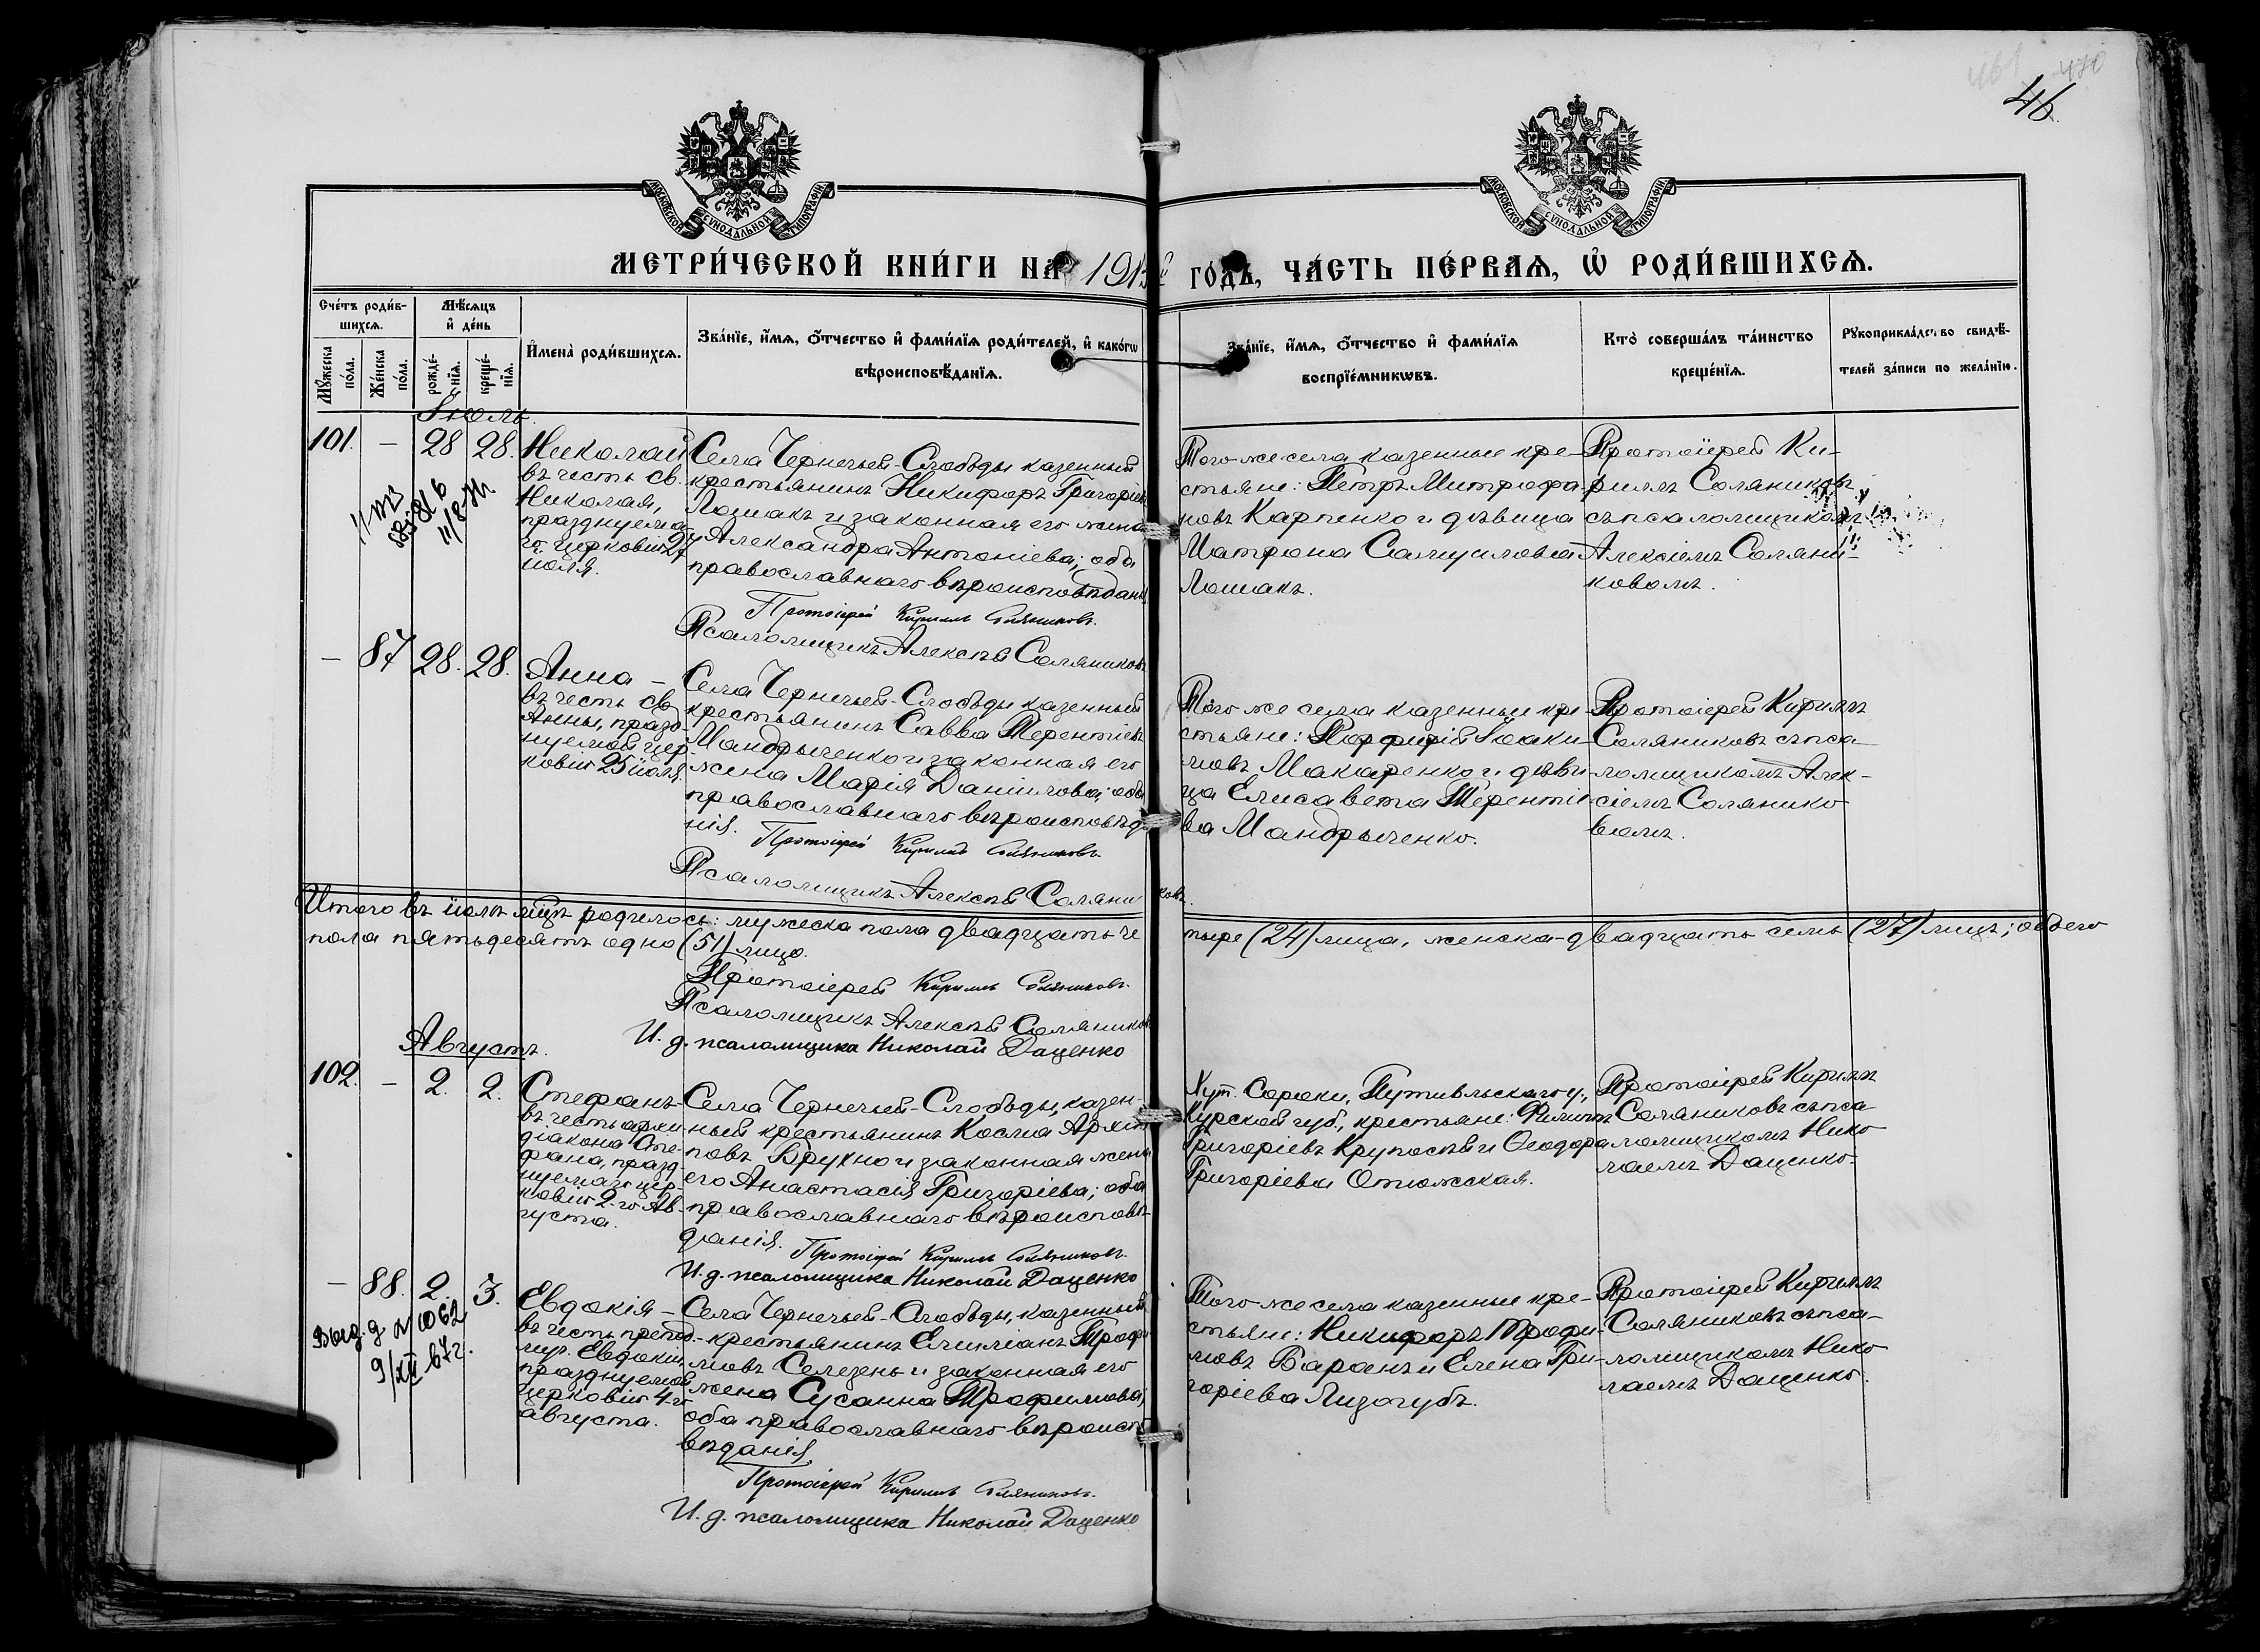 46
МОСКОВСКОЙ СѴНОДАЛЬНОЙ ТИПОГРАФІИ
МОСКОВСКОЙ СѴНОДАЛЬНОЙ ТИПОГРАФІИ
МЕТРИ́ЧЕСКОЙ КНИ́ГИ НА 191 ГО́ДЪ, ЧА́СТЬ ПЕ́РВАЯ, Ѡ РОДИ́ВШИХСЯ.
Сче́тъ роди́в-
шихся.
Мужеска по́ла.
Же́нска по́ла.
Мѣ́сяцъ
и де́нь
рожде́-
нїя.
креще́-
нїя.
Имена̀ роди́вшихся.
Зва́нїе, и́мя, о́тчество и фами́лїя роди́телей, и како́гѡ
вѣроисповѣ́данїя.
Зва́нїе, и́мя, о́тчество и фами́лїя
воспрїе́мникѡвъ.
Кто̀ соверша́лъ та́инство
креще́нїя.
Рукоприкла́дство свидѣ́-
телей за́писи по жела́нїю.
Іюль.
101. – 28 28.
Николай
въ честь св.
Николая,
празднуема-
го церковію 27
іюля.
Села Чернечьей-Слободы казенный
крестьянинъ Никифоръ Григоріев
Лошакъ и законная его жена
Александра Антоніева; оба
православнаго вѣроисповѣдані
Протоіерей Кириллъ Соляниковъ.
Псаломщикъ Алексѣй Соляников
Того же села казенные кре-
стьяне: Петръ Митрофа-
новъ Карпенко и дѣвица
Матрона Самуилова
Лошакъ.
Протоіерей Ки-
риллъ Соляниковъ
съ псаломщикомъ
Алексіемъ Соляни-
ковымъ.
– 87 28. 28.
Анна –
въ честь св.
Анны, празд-
нуемой цер-
ковію 25 іюля.
Села Чернечьей-Слободы казенный
крестьянинъ Савва Терентіевъ
Мандрыченко и законная его
жена Марія Даніилова; оба
православнаго вѣроисповѣда
нія.
Протоіерей Кириллъ Соляниковъ.
Псаломщикъ Алексѣй Соляни ковъ.
Того же села казенные кре-
стьяне: Порфирій Іоаки-
мовъ Макаренко и дѣви-
ца Елисавета Терентіе-
ва Мандрыченко.
Протоіерей Кириллъ
Соляниковъ съ пса-
ломщикомъ Алек-
сіемъ Солянико-
вымъ.
Итого въ іюлѣ мѣцѣ родилось: мужеска пола двадцать че тыре (24) лица, женска – двадцать семь (27) лицъ; обоего
пола пятьдесятъ одно (51) лицо.
Протоіерей Кириллъ Соляниковъ.
Псаломщикъ Алексѣй Соляников
И. д. псаломщика Николай Даценко
Августъ.
102. – 2. 2.
Стефанъ –
въ честь архи-
діакона Сте-
фана, празд-
нуемаго цер-
ковію 2-го Ав-
густа.
Села Чернечьей-Слободы, казен-
ный крестьянинъ Косма Архип
повъ Брухно и законная жена
его Анастасія Григоріева; оба
православнаго вѣроисповѣ-
данія.
Протоіерей Кириллъ Соляниковъ.
И. д. псаломщика Николай Даценко
Хут. Сороки, Путивльскаго у.,
Курской губ., крестьяне: Филиппъ
Григоріевъ Крупосѣй и Ѳеодора
Григоріева Отюжская.
Протоіерей Кириллъ
Соляниковъ съ пса-
ломщикомъ Нико-
лаемъ Даценко.
– 88. 2. 3.
Выд. д. № 1062
9/XII 67г.
Евдокія –
въ честь препод.
муч. Евдокіи,
празднуемой
церковію 4-го
августа.
Села Чернечьей-Слободы, казенный
крестьянинъ Емиліанъ Трофи
мовъ Селезень и законная его
жена Сусанна Трофимова;
оба православнаго вѣроиспо
вѣданія.
Протоіерей Кириллъ Соляниковъ.
И. д. псаломщика Николай Даценко
Того же села казенные кре-
стьяне: Никифоръ Трофи-
мовъ Баранъ и Елена Гри-
горіева Лизогубъ.
Протоіерей Кириллъ
Соляниковъ съ пса-
ломщикомъ Нико-
лаемъ Даценко.